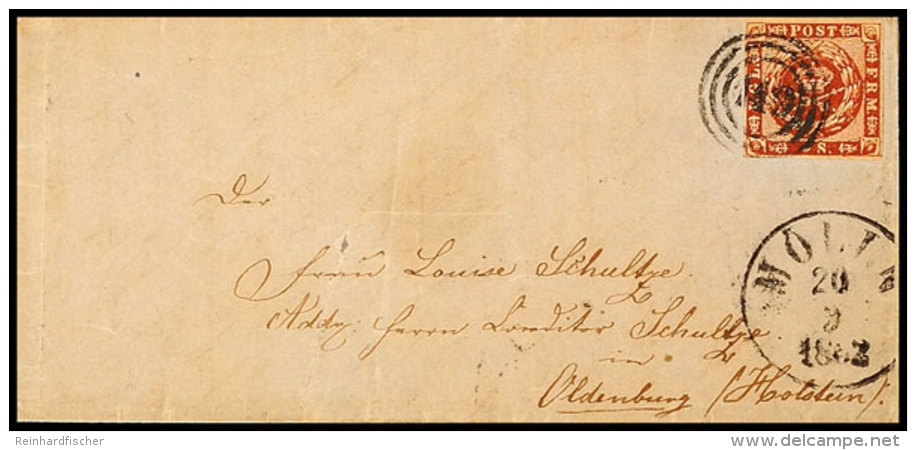 POST
FRM.
S.
Der
Frau Louise Schultze
Addr. Herrn Conditor Schultze
in
Oldenburg (Holstein).
MÖLLN
20
1862
Reinhardfischer
www.delcampe.net